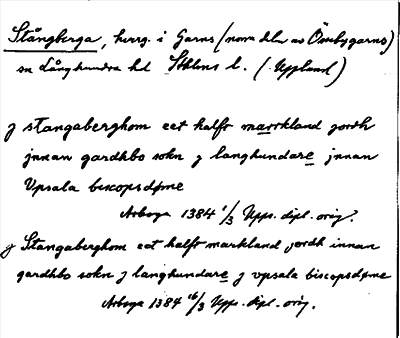 Stångberga, herrg. i Garns (norra delen av Össebygarns)
sn Långhundra hd Sthlms l. (Uppland)
j stangaberghom eet halft markland jordh
jnnan gardhbo sokn j langhundare jnnan
Upsala biscopsdøme
Arboga 1384 1/3 Upps. dipl. orig.
j Stangaberghom eet halft markland jordh innan
gardhbo sokn j langhundare j vpsala biscopsdøme
Arboga 1384 16/3 Upps. dipl. orig.